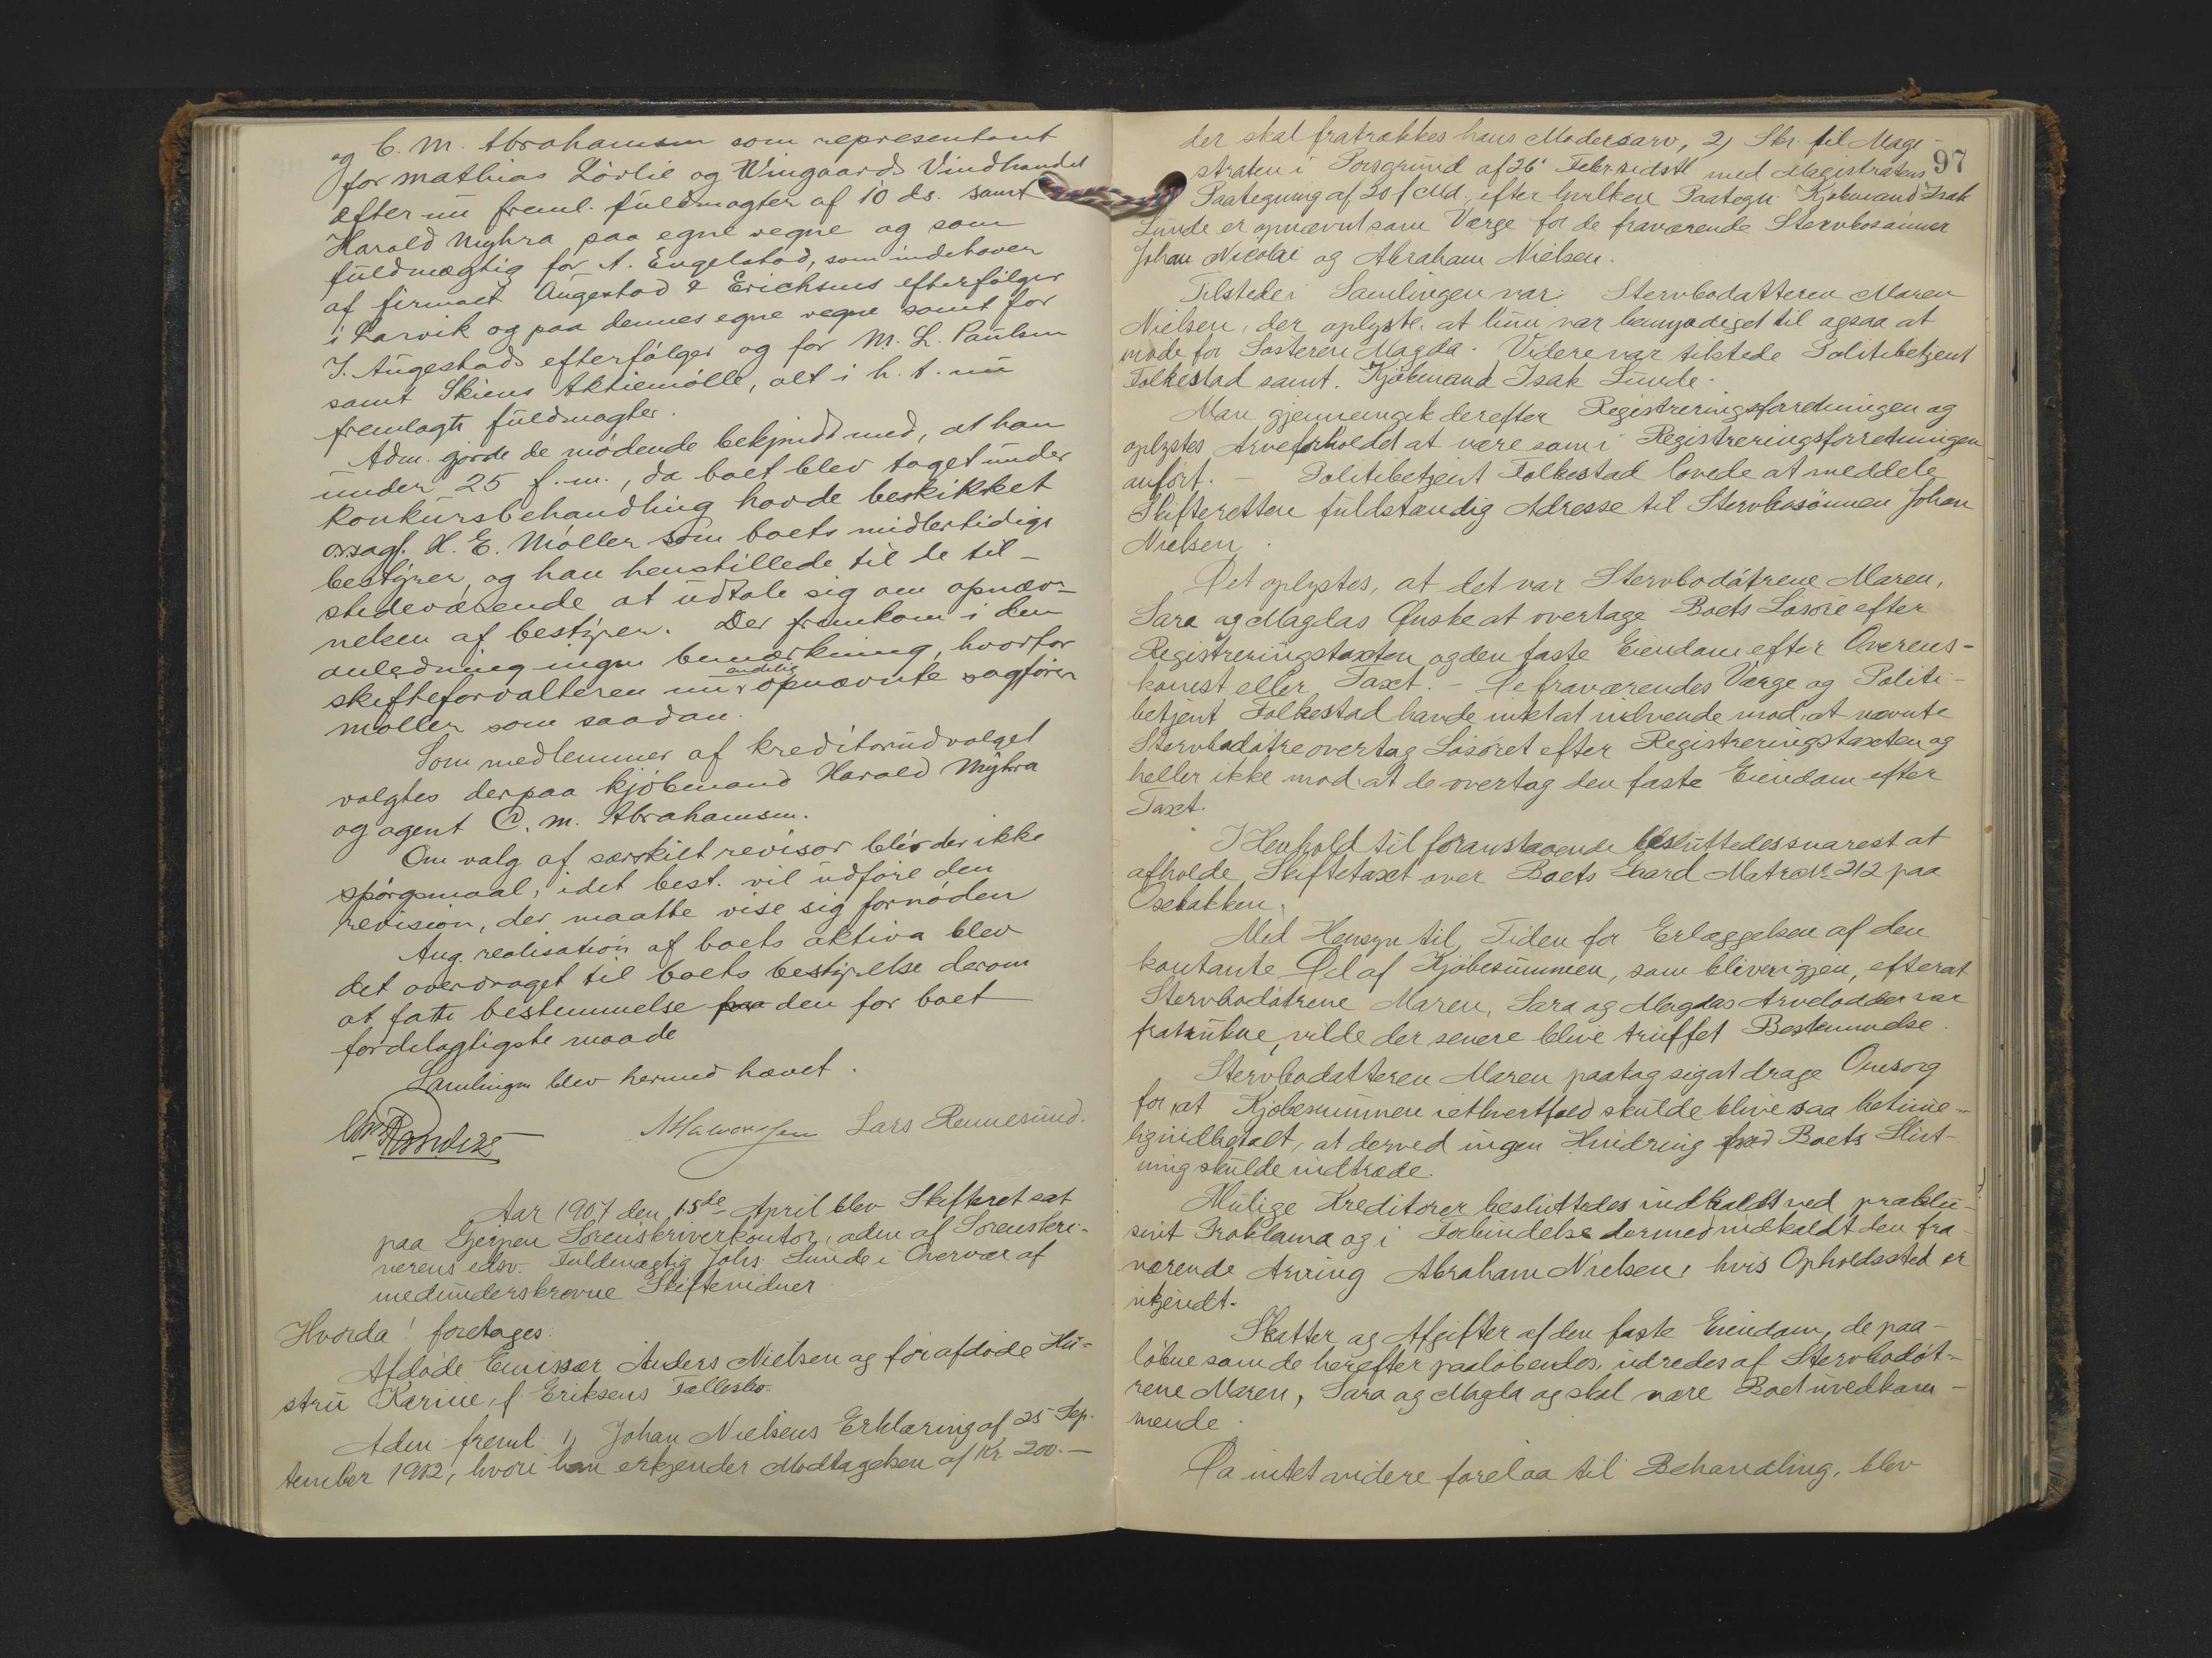 og C. M. Abrahamsen som representant
for Mathias Lövlie og Wingaards Vindhandel
efter nu freml. fuldmagter af 10 ds. samt
Harald Myhra paa egne vegne og som
fuldmægtig for A. Engelstad, som indehaver
af firmaet Augestad & Erichsens efterfölger
i Larvik og paa dennes egne vegne samt for
J. Augestads efterfölger og for M. L. Paulsen
samt Skiens Aktiemölle, alt i h. t. nu
fremlagte fuldmagter.
Adm. gjorde de mödende bekjendt med, at han
under 25 f. m., da boet blev taget under
konkursbehandling havde beskikket
o.r.sagf. H. E. Möller som boets midlertidige
bestyrer, og han henstillede til de til-
stedeværende at udtale sig om opnæv-
nelsen af bestyrer. Der fremkom i den
anledning ingen bemærkning, hvorfor
skifteforvalteren nu endelig opnævnte sagförer
Möller som saadan.
Som medlemmer af kreditorudvalget
valgtes derpaa kjöbmand Harald Myhra
og agent C. M. Abrahamsen.
Om valg af særskilt revisor blév der ikke
spörgsmaal, idet best. vil udföre den
revision, der maatte vise sig fornöden
Ang. realisation af boets aktiva blev
det overdraget til boets bestyrelse derom
at fatte bestemmelse paa den for boet
fordelagtigste maade
Samlingen blev hermed hævet.
Lars Rennesund.
Aar 1907 den 15de April blev Skifteret sat
paa Gjerpen Sorenskriverkontor, adm af Sorenskri-
verens edsv. Fuldmægtig Johs. Lunde i Overvær af
medunderskrevne Skiftevidner
Hvorda! foretages:
Afdöde Emissær Anders Nielsen og för afdöde Hu-
stru Karine f. Eriksens Fællesbo.
Adm. freml. 1) Johan Nielsens Erklæring af 25 Sep.
tember 1902, hvori han erkjender Modtagelsen af Kr 200.-
97
der skal fratrækkes hans Modersarv, 2) Skr. til Magi-
straten i Porsgrund af 26' Febr. sidstl med Magistratens
Paategning af 20 f. Md., efter hvilken Paategn. Kjöbmand Isak
Lunde er opnævnt som Værge for de fraværende Stervbosönner
Johan Nicolai og Abraham Nielsen.
Tilstede i Samlingen var: Stervbodatteren Maren
Nielsen, der oplyste, at hun var bemyndiget til ogsaa at
möde for Sösteren Magda. Videre var tilstede Politibetjent
Folkestad samt. Kjöbmand Isak Lunde.
Man gjennemgik derefter Registreringsforretningen og
oplystes Arveforholdet at være som i Registreringsforretningen
anfört. - Politibetjent Folkestad lovede at meddele
Skifteretten fuldstændig Adresse til Stervbosönnen Johan
Nielsen.
Det oplystes, at det var Stervbodötrene Maren,
Sara og Magdas Önske at overtage Boets Lösöre efter
Registreringstaxten og den faste Eiendom efter Overens-
komst eller Taxt. - De fraværendes Værge og Politi-
betjent Folkestad havde intet at indvende mod, at nævnte
Stervbodötre overtog Lösöret efter Registreringstaxten og
heller ikke mod. at de overtog den faste Eiendom efter
Taxt.
I Henhold til foranstaaende besluttedes snarest at
afholde Skiftetaxt over Boets Gaard Matr. No 212 paa
Osebakken.
Med Hensyn til Tiden for Erlæggelsen af den
kontante Del af Kjöbesummen, som bliver igjen, efterat
Stervbodötrene Maren, Sara og Magdas Arvelodder var
fratrukne, vilde der senere blive truffet Bestemmelse.
Stervbodatteren Maren paatog sig at drage Omsorg
for, at Kjöbesummen i ethvertfald skulde blive saa betime-
lig indbetalt, at derved ingen Hindring for Boets Slut-
ning skulde indtræde.
Mulige Kreditorer besluttedes indkaldt ved præklu-
sivt Proklama og i Forbindelse dermed indkaldt den fra-
værende Arving Abraham Nielsen, hvis Opholdssted er
ukjendt.
Skatter og Afgifter af den faste Eiendom, de paa-
löbne som de herefter paalöbendes, udredes af Stervbodöt-
rene Maren, Sara og Magda og skal være Boet uvedkom-
mende.
Da intet videre forelaa til Behandling, blev